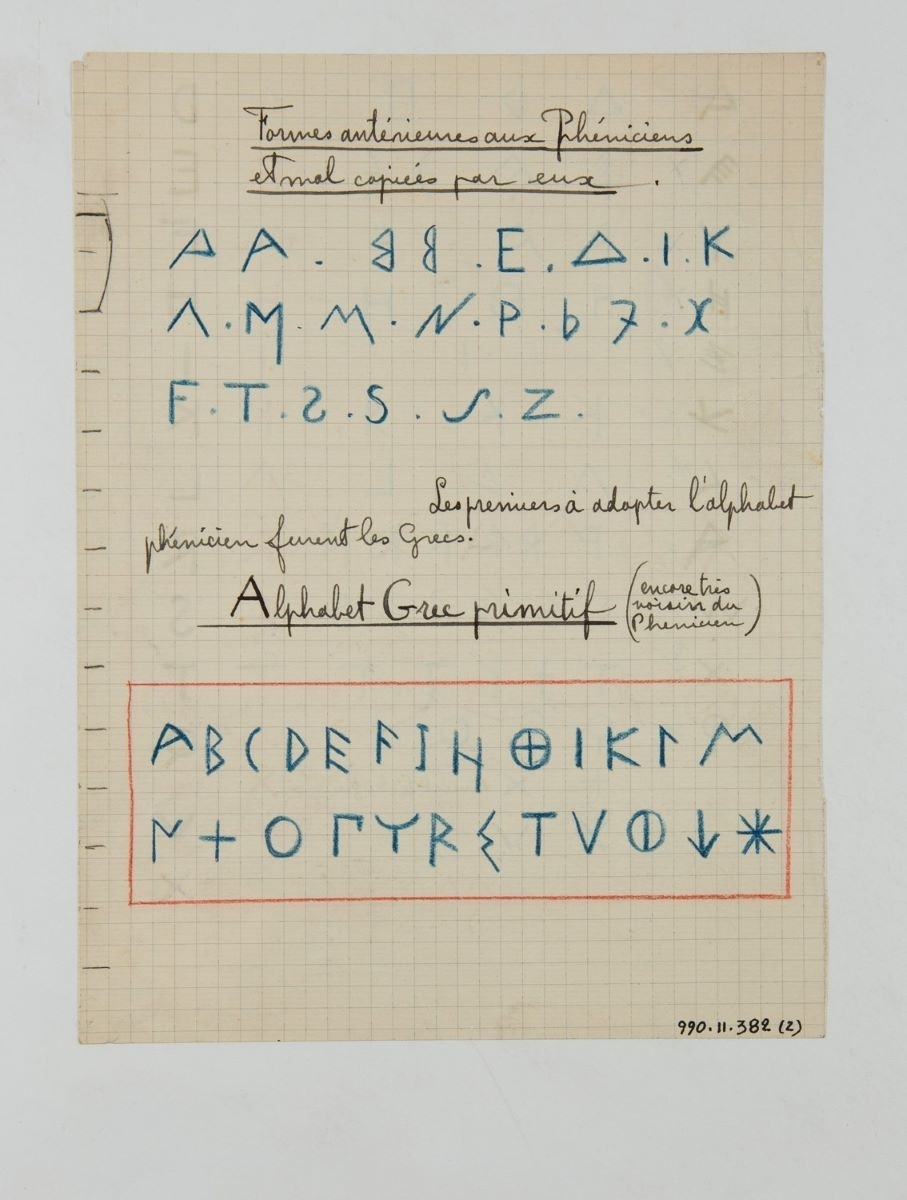 Formes antérieures aux Phéniciens
et mal copiées par eux.
A A . B B . E . Δ . I . K
Λ . M . M . N . P . b 7 . X
F . T . S . S . S . Z .
Les premiers à adapter l'alphabet
phénicien furent les Grecs.
Alphabet Grec primitif (encore très
voisin du
Phénicien)
A B C D E F I H ⊕ I K Γ M
N + O Γ Y R Σ T V Φ ↓ *
990.11.382 (2)